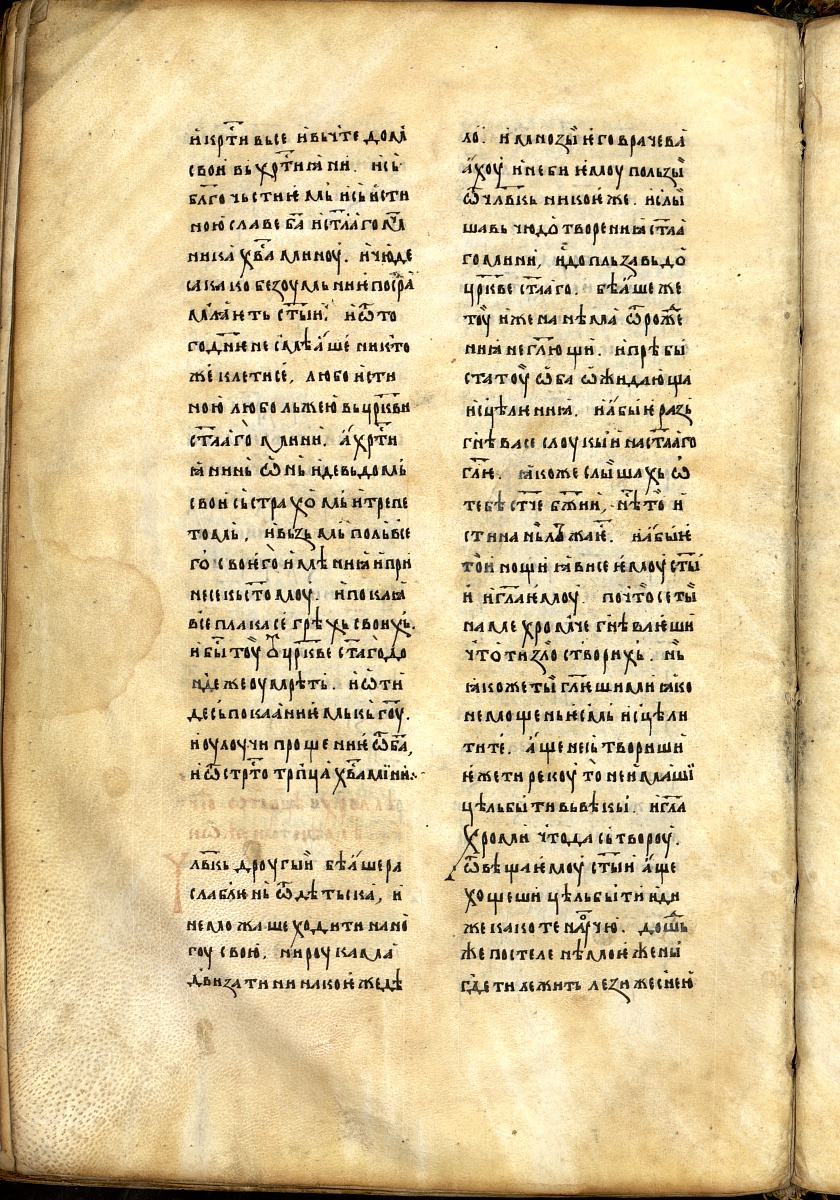 и крⷭ҇ти вьсе и вь чте домꙋ
свои вь хрⷭ҇тиꙗни. и сь
блг҃очьстиѥмь и сь исти
ною славе ба҃ и ст҃аго мч҃
ника хв҃а миноу. и чюде
са како безоумьниѥ посра
млꙗѥть ст҃ыи. и ѿто
го дн҃и не смѣаше никто
же клетисе, любо исти
ною любо льжею вь цр҃кви
ст҃аго мини. а хрⷭ҇ти
ꙗнинь ѡнь иде вь домь
свои сь страхомь и трепе
томь, и вьзьмь поль все
го своѥго имѣниꙗ и при
несе кь ст҃омоу. и покаꙗ
все плакасе грѣхь своихь.
и бы тоу ѹ цр҃кве ст҃аго до
ндеже оумрѣть. и ѡти
де сь покаꙗниѥмь кь гоу҃.
и оулоучи прощениѥ ѿ ба҃,
и ѿ стрⷭ҇тотрьпца хв҃а мини.
лв҃кь дроугыи бѣаше ра
слаблѥнь ѿ дѣтьска, и
не можаше ходити на но
гоу своюи. ни роукама
двизати ни инакоѥже дѣ
ло. и мнозы ѥго врачева
ахоу и не би ѥмоу пользы
ѿ чл҃вкь никоѥже. и слы
шавь чюдотворениꙗ ст҃аа
го мини, и допльза вь до
цр҃кве ст҃аго. бѣаше же
тоу и жена нѣма ѿ рожⷣе
ниꙗ не гл҃ющи. и прѣбы
ста тоу ѡба ѡжидающа
исцѣлиниꙗ. и абыѥ разь
гнѣвасе слоукыи на ст҃аго
гл҃ѥ. ꙗкоже слышахь ѡ
тебѣ ст҃че бж҃ии, нѣ то и
стина нь льжаѥ. и абыѥ
тои нощи ꙗвисе ѥмоу ст҃ы
и и гл҃а ѥмоу. почто се ты
на ме хромче гнѣвлѥши
что ти зло створихь. нь
ꙗкоже ты гл҃ѥши ми ꙗко
немощень ѥсмь исцѣли
ти те. аще не сьтвориши
ѥже ти рекоу то не имаши
цѣль быти вь вѣкы. и гл҃а
хроми что да сьтвороу.
ѿвѣща ѥмоу ст҃ыи аще
хощеши цѣль быти иди
же како те наоучю. дошьⷣ
же постеле нѣмоиѥ жены
где ти лежить лези же с нею